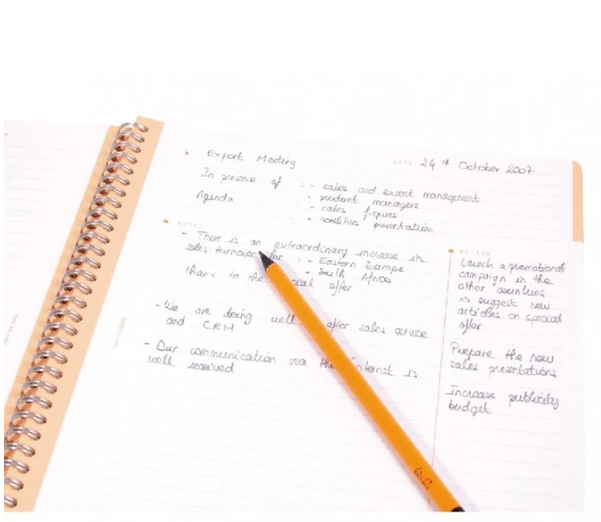 Export Meeting
DATE 24th October 2007
In presence of : - sales and export management
- product managers
Agenda : - sales figures
- novelties presentation
NOTES
- There is an extraordinary increase in
sales turnover for : - Eastern Europe
- South Africa
thanks to the offer
- We are doing well after sales service
and CRM
- Our communication via the internet is
well received
ACTION
Launch a promotional
campaign in the
other countries
=> suggest new
articles on special
offer
Prepare the new
sales presentations
Increase publicity
budget